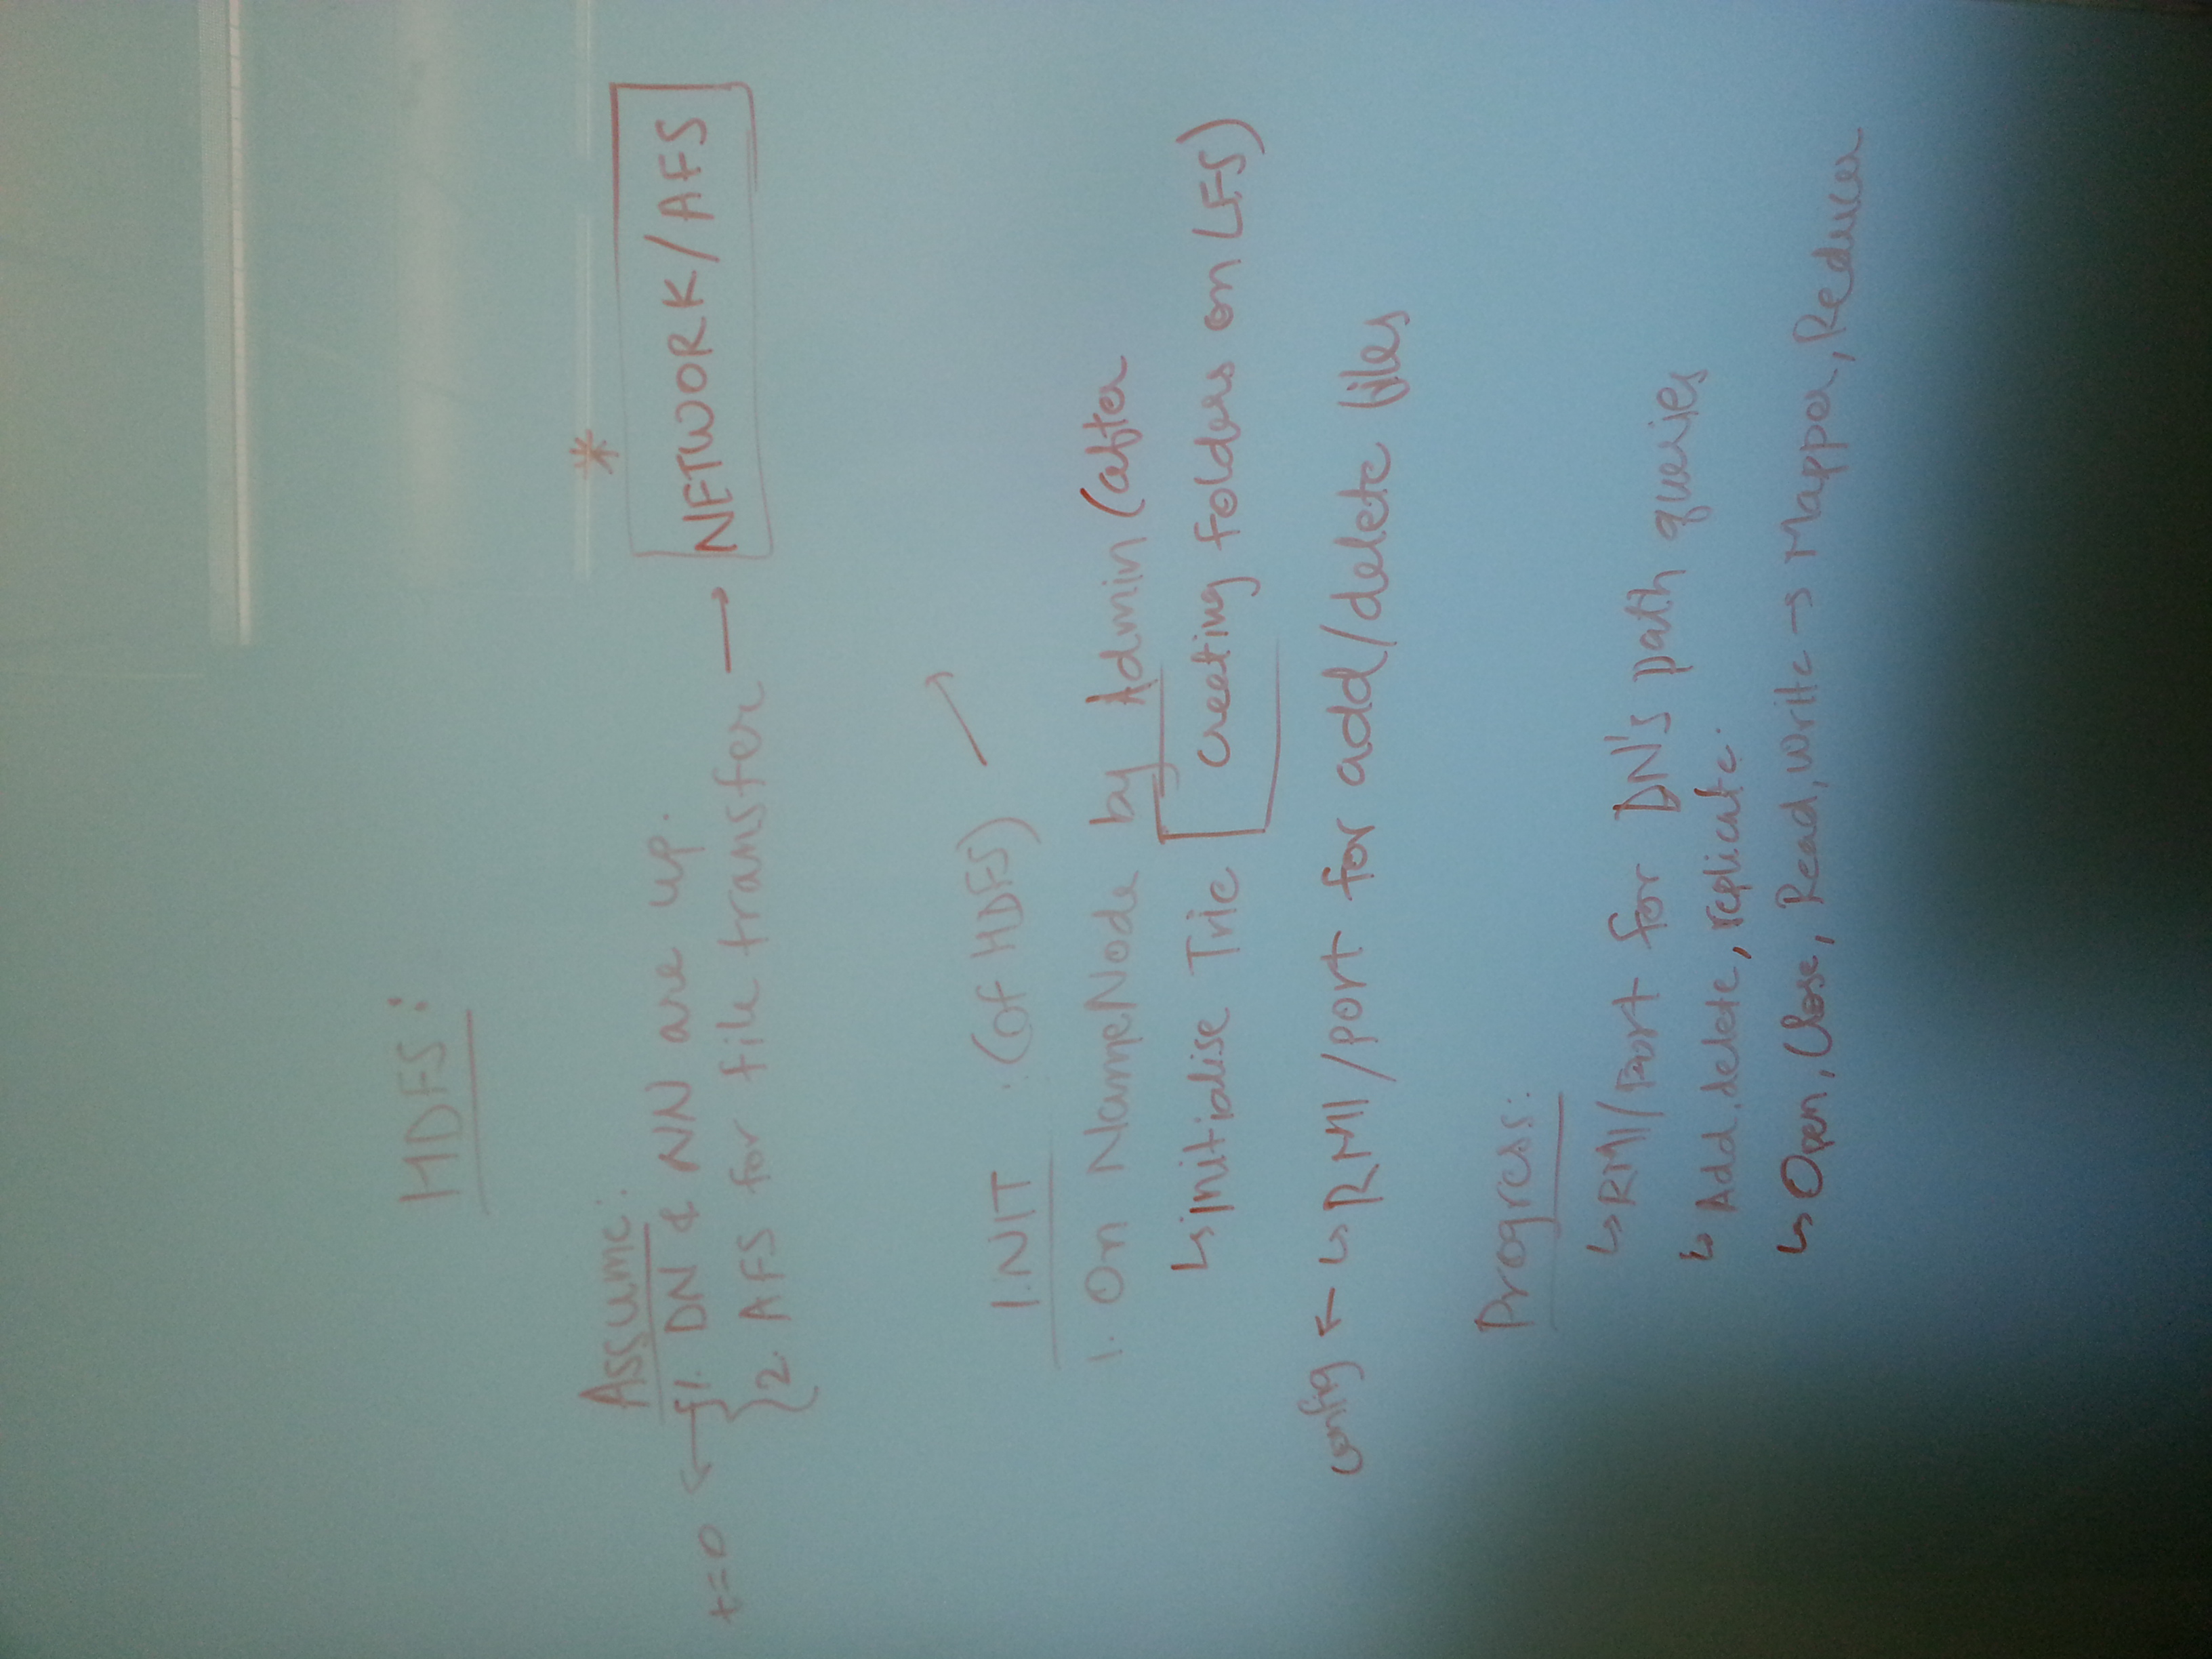 HDFS:
Assume:
t=0 ← { 1. DN & NN are up.
2. AFS for file transfer → NETWORK/AFS *
INIT : (of HDFS) ↗
1. On NameNode by Admin (after
↳ initialise Trie [ creating folders on LFS)
config ← ↳ RMI/port for add/delete files
Progress:
↳ RMI/Port for DN's path queries
↳ Add, delete, replicate.
↳ Open, Close, Read, Write → Mapper, Reducer